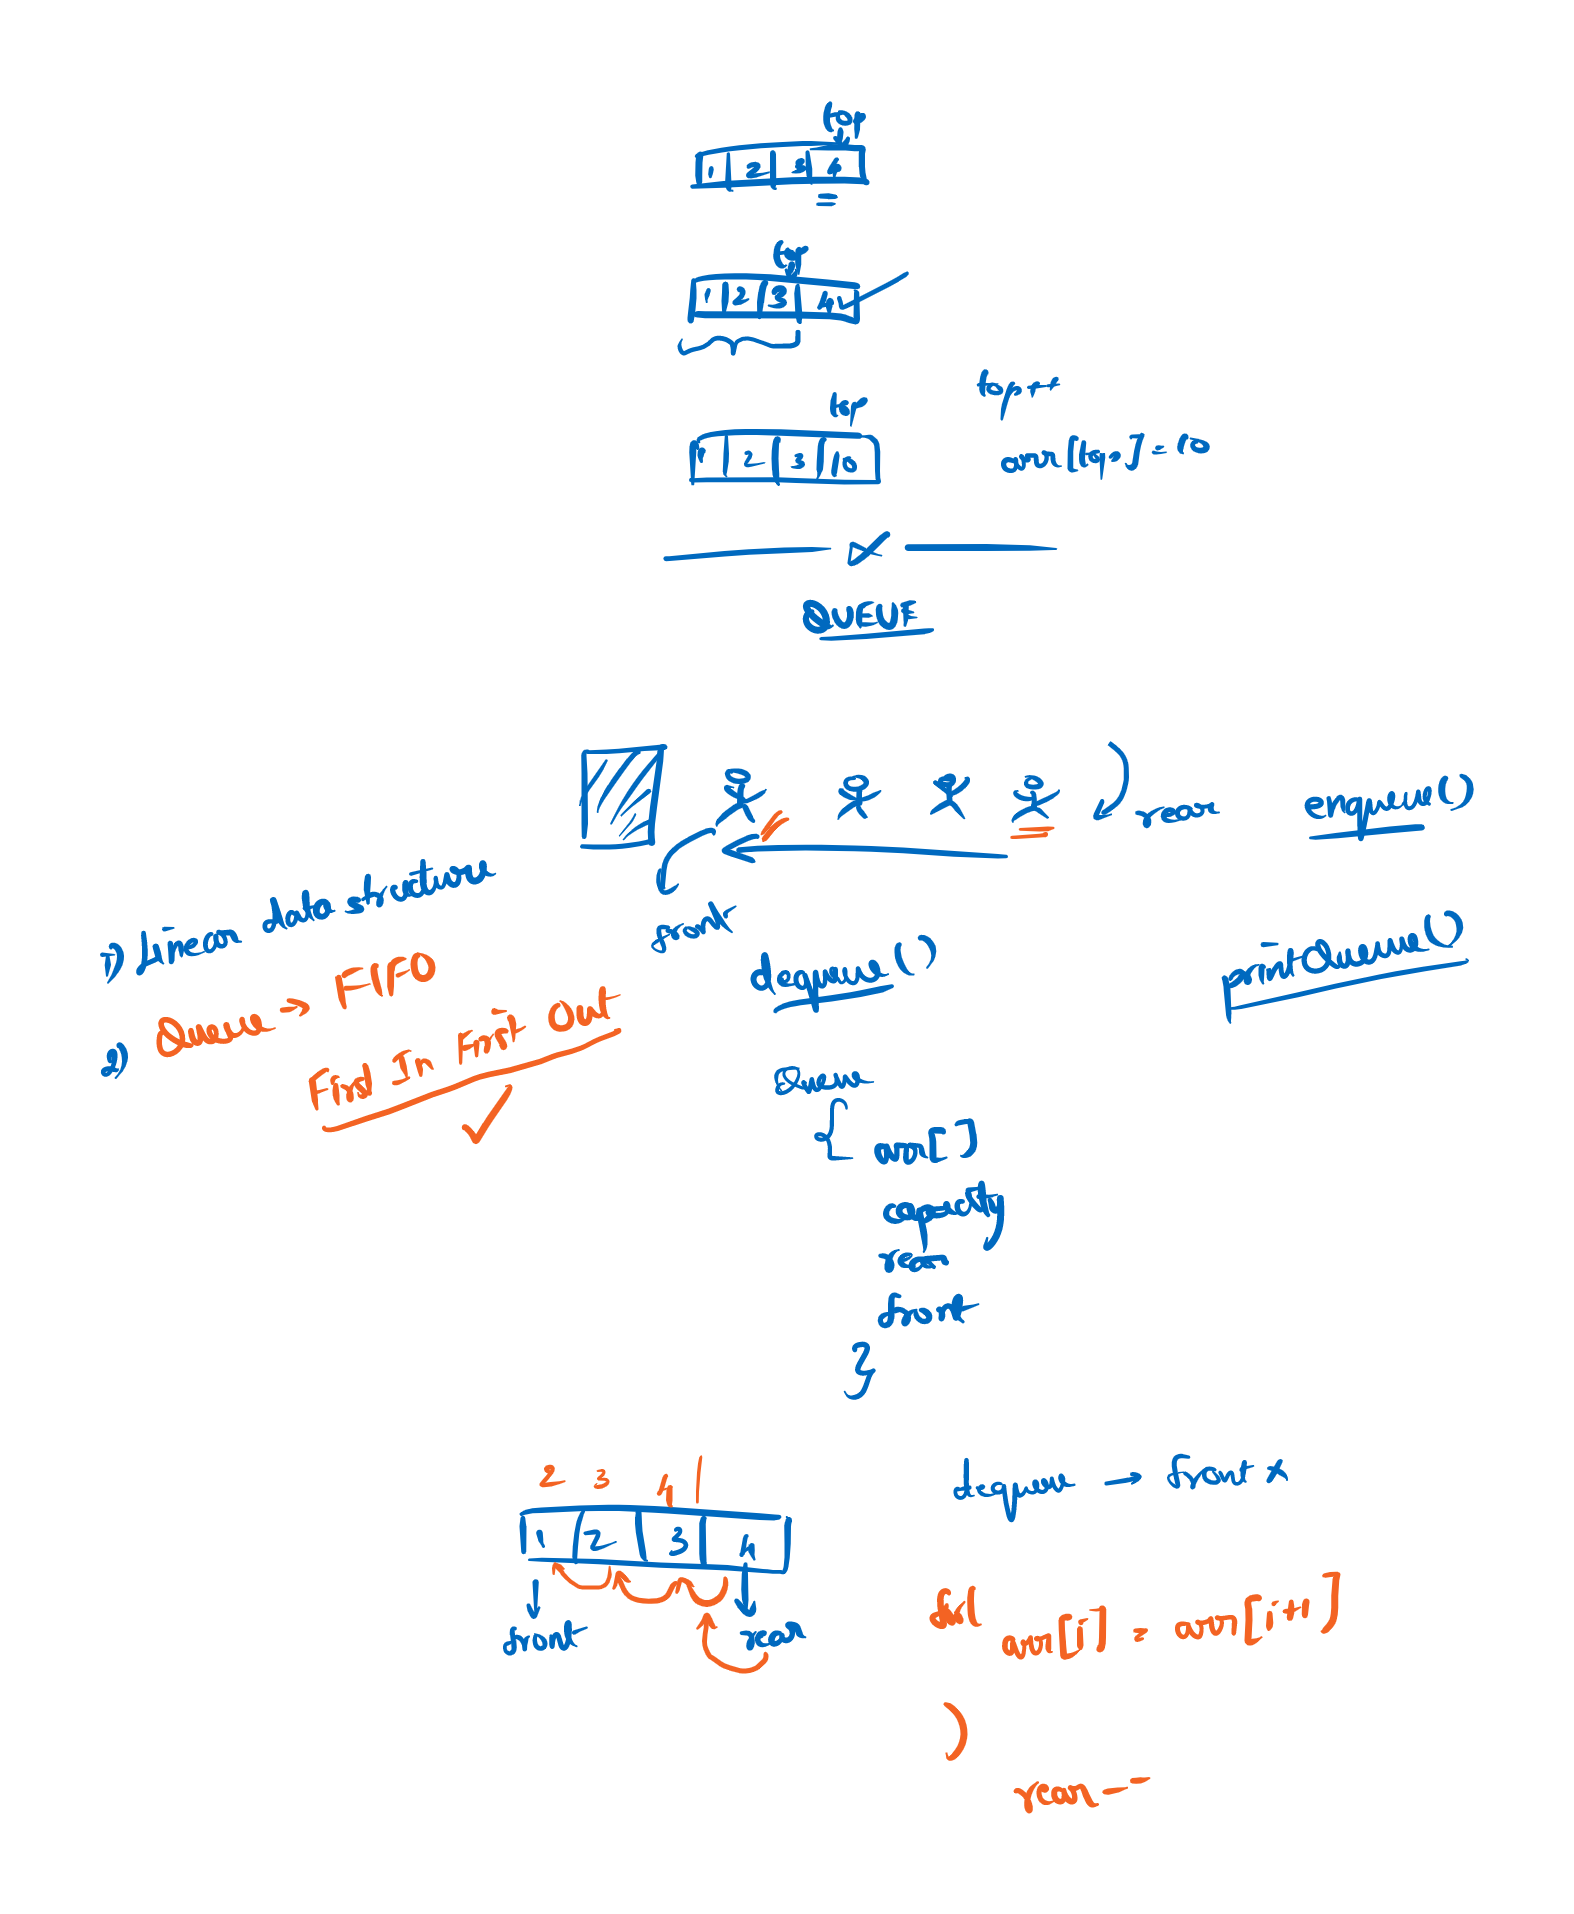 top
1 2 3 4
top
1 2 3 4
top
1 2 3 10
top++
arr[top] = 10
QUEUE
rear
enqueue()
front
1) Linear data structure
dequeue()
printQueue()
2) Queue → FIFO
First In First Out
Queue
{ arr[]
capacity
rear
front
}
2 3 4
1 2 3 4
front
rear
dequeue → front x
for(
arr[i] = arr[i+1]
)
rear--